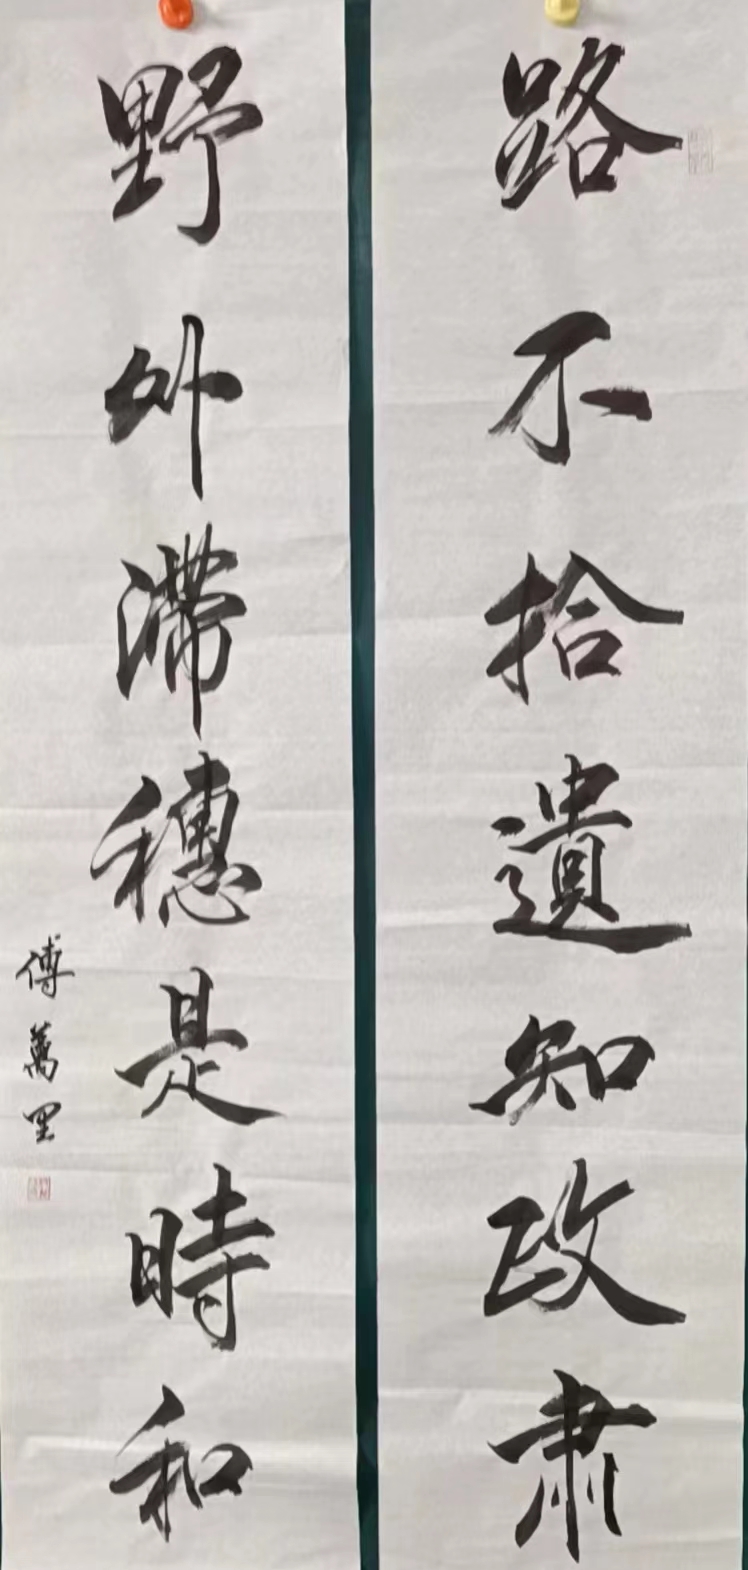 路不拾遺知政肅
野外滯穗是時和
傅萬里